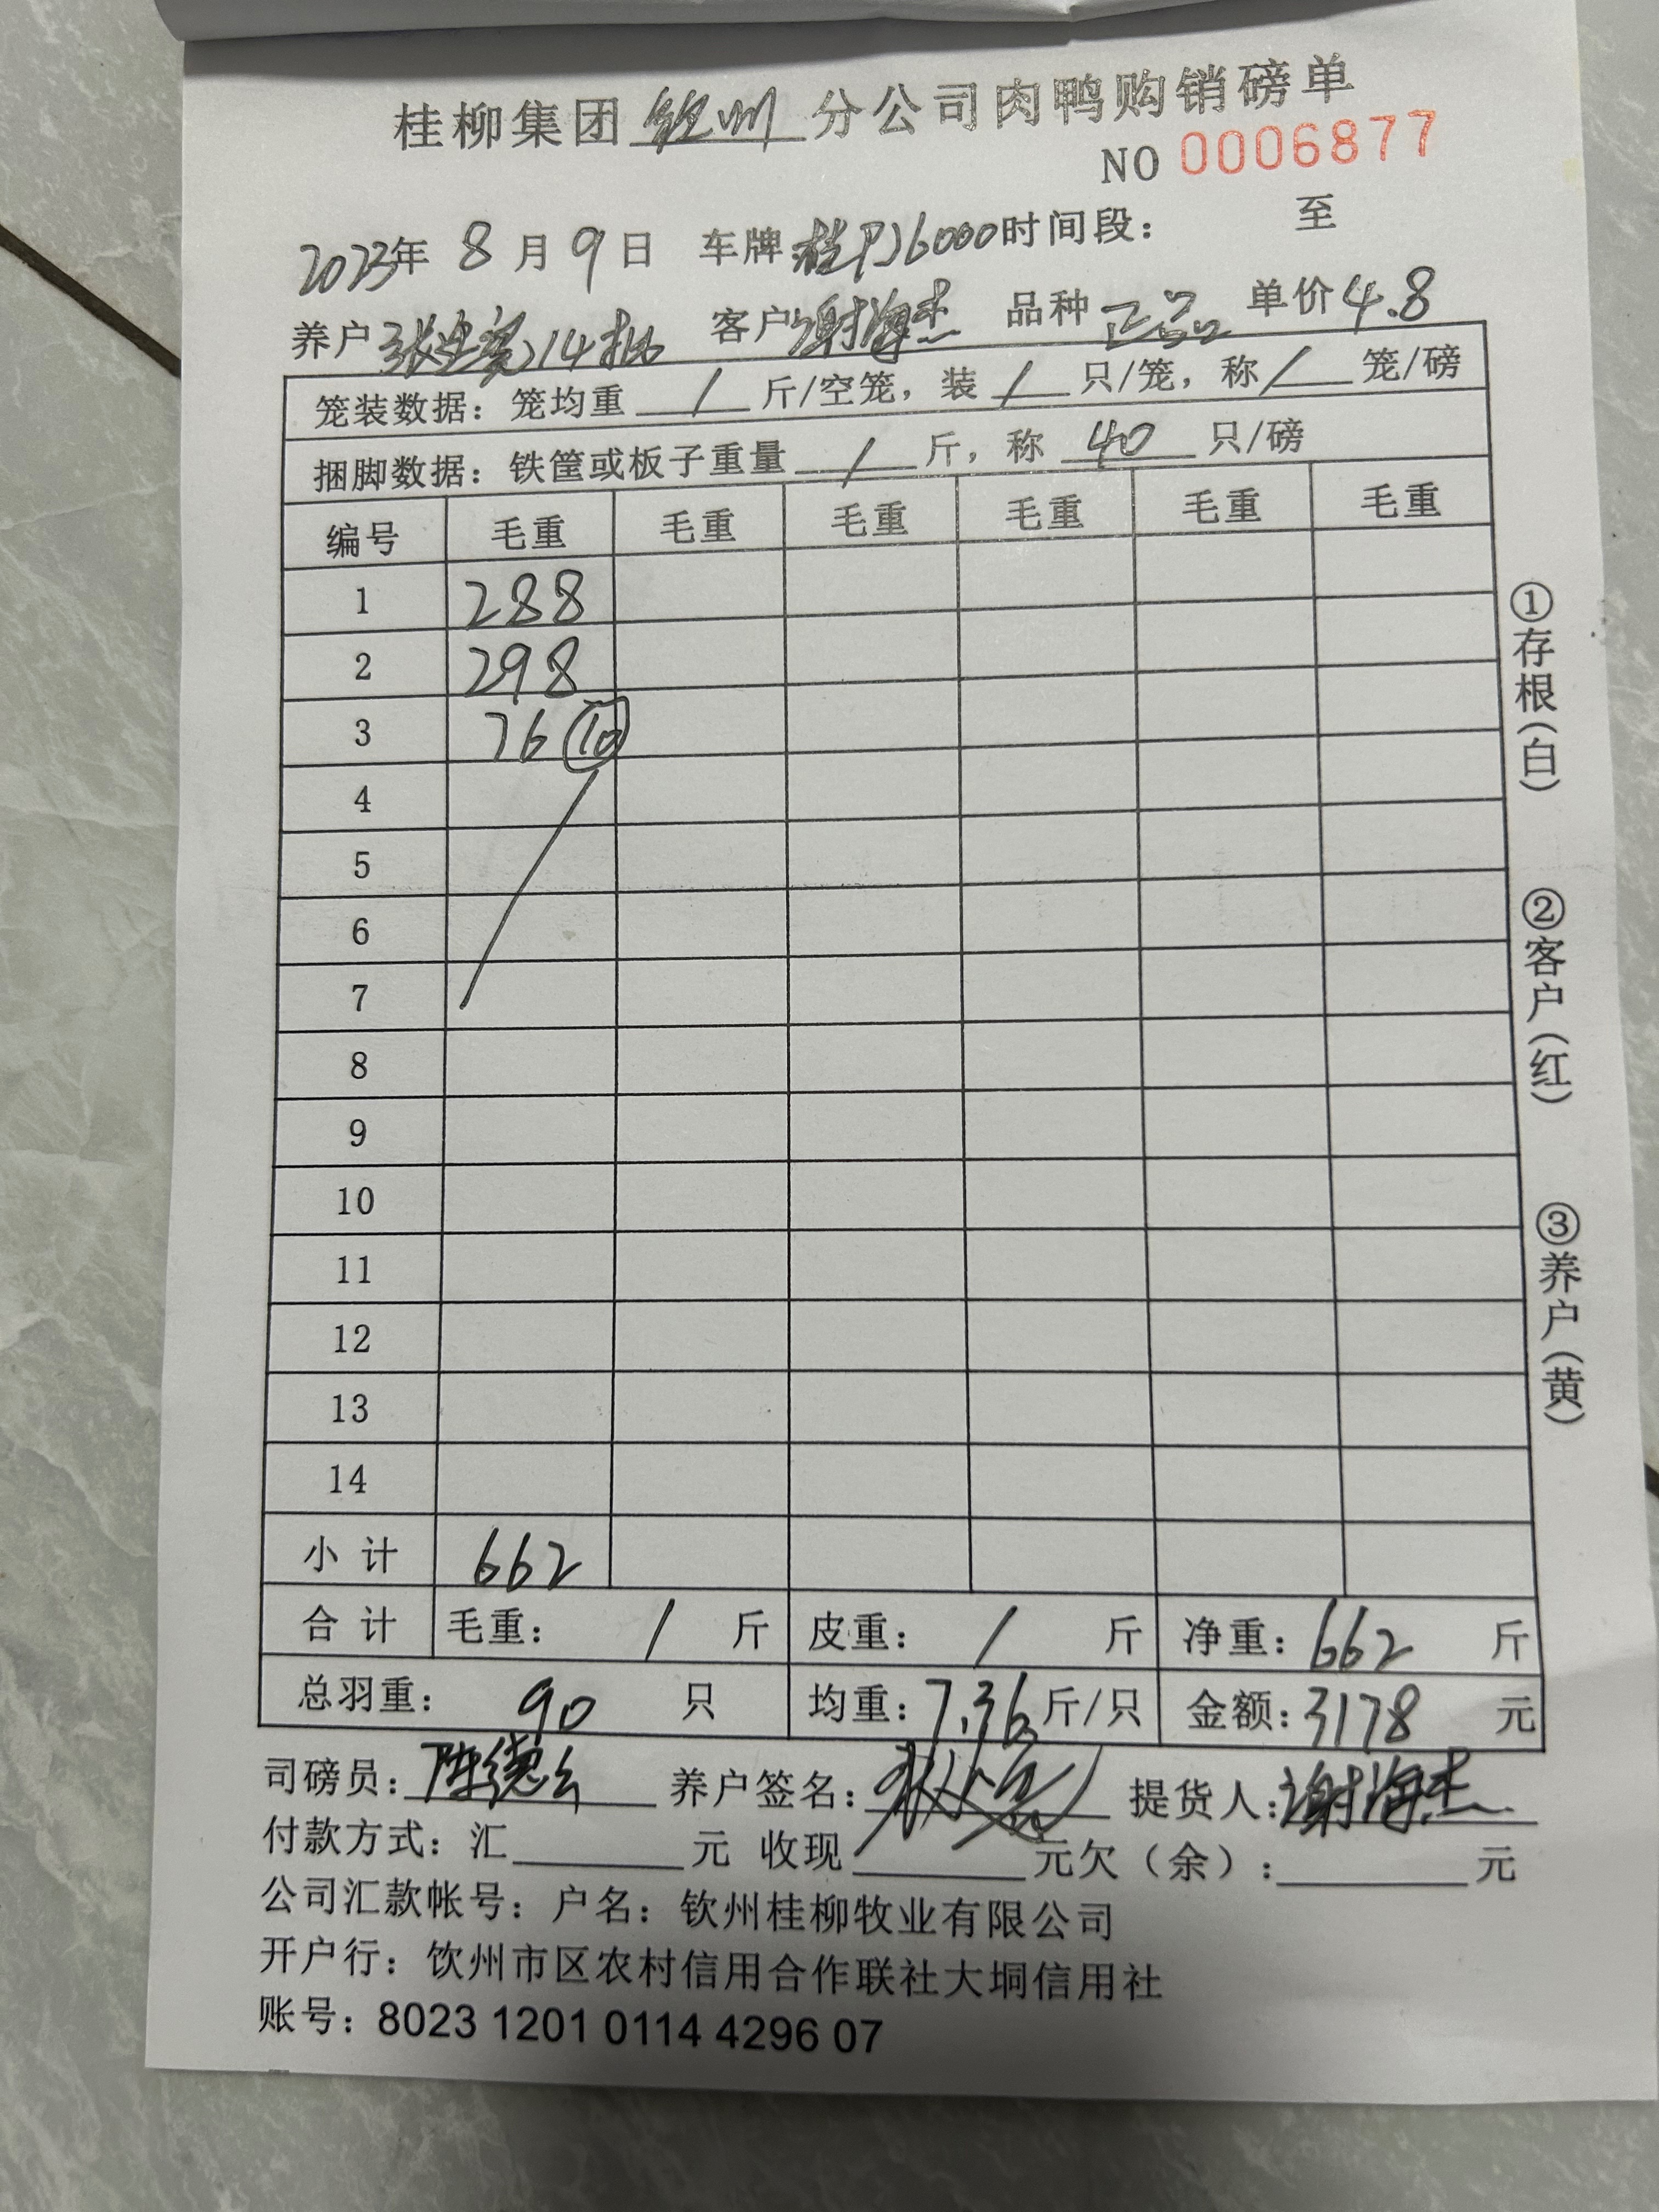 桂柳集团 钦州 分公司肉鸭购销磅单
NO 0006877
2023年 8 月 9 日 车牌 桂 6000 时间段: 至
养户 14批 客户 谢海杰 品种 正品 单价 4.8
笼装数据: 笼均重 / 斤/空笼, 装 / 只/笼, 称 / 笼/磅
捆脚数据: 铁筐或板子重量 / 斤, 称 40 只/磅
编号 毛重 毛重 毛重 毛重 毛重 毛重
1 288
2 298
3 76 ⑩
4
5
6
7
8
9
10
11
12
13
14
小计 662
合计 毛重: / 斤 皮重: / 斤 净重: 662 斤
总羽重: 90 只 均重: 7.36 斤/只 金额: 3178 元
①存根(白) ②客户(红) ③养户(黄)
司磅员: 陈德 养户签名: 提货人: 谢海杰
付款方式: 汇 元 收现 元欠(余): 元
公司汇款帐号: 户名: 钦州桂柳牧业有限公司
开户行: 钦州市区农村信用合作联社大垌信用社
账号: 8023 1201 0114 4296 07